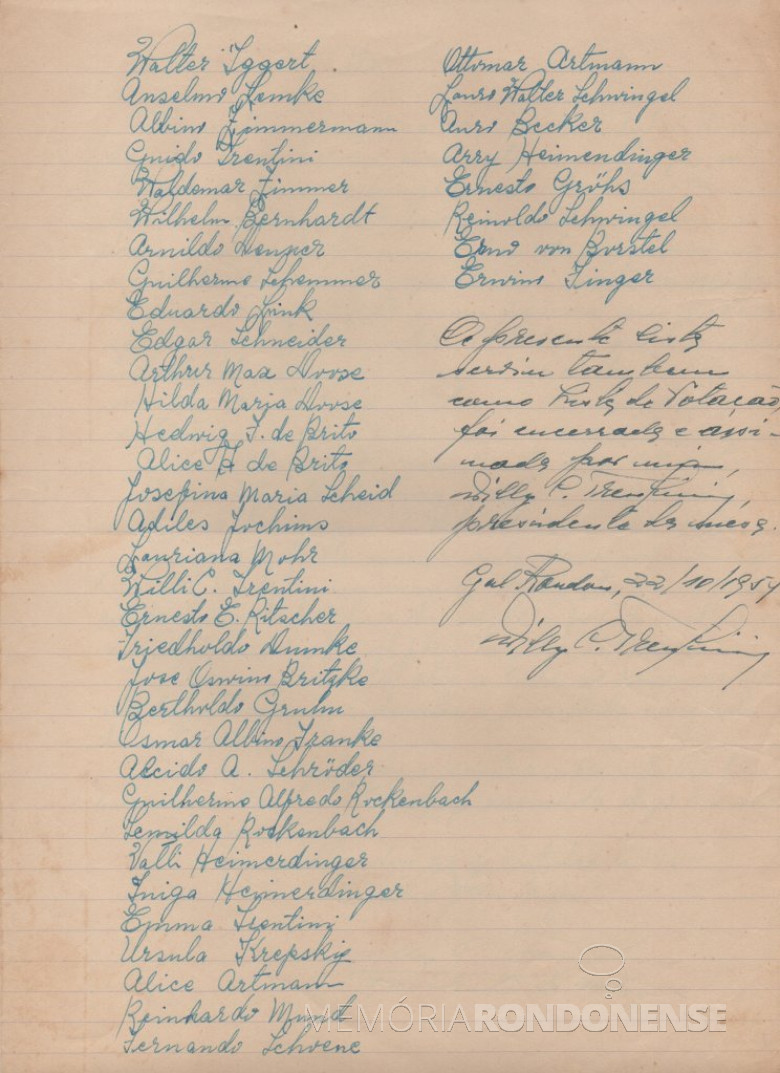 Walter Iggert
Anselmo Lemke
Albino Zimmermann
Guido Trentini
Waldemar Zimmer
Wilhelm Bernhardt
Arnildo
Guilherme Schemmer
Eduardo Link
Edgar Schneider
Arthur Max Doose
Hilda Maria Doose
Hedwig T. de Brito
Alice H de Brito
Josefina Maria Scheid
Adiles Jochims
Lauriana Mohr
Willi C. Trentini
Ernesto E. Ritscher
Friedholdo Dumke
Jose Oswino Britzke
Bertholdo Gruhn
Osmar Albino Franke
Alcido A. Schröder
Guilherme Alfredo Rockenbach
Lemilda Rockenbach
Valli Heimerdinger
Iniga Heimerdinger
Emma Trentini
Ursula Krepsky
Alice Artmann
Reinhardo Mund
Fernando Schoene
Ottomar Artmann
Lauro Walter Schwingel
Auro Becker
Arry Heimendinger
Ernesto Gröhs
Reinoldo Schwingel
Erno von Borstel
Erwino Finger
A presente lista
serviu tambem
como Lista de Votação,
foi encerrada e assi-
nada por mim,
Willy C. Trentini,
presidente da mesa.
Gal Rondon, 22/10/1954
Willy C. Trentini
MEMÓRIARONDONENSE